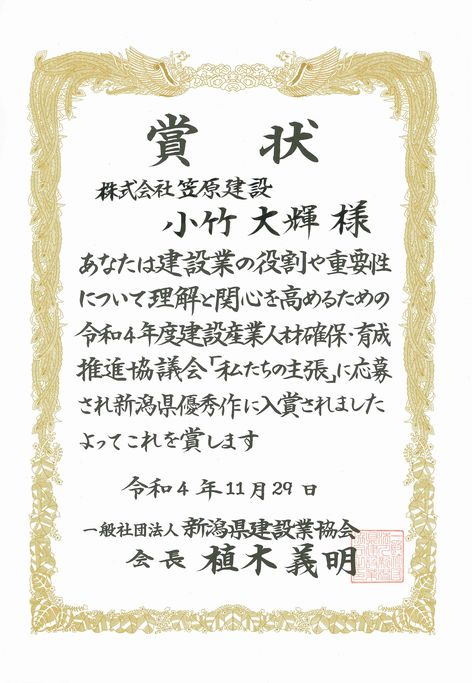 賞状
株式会社笠原建設
小竹大輝様
あなたは建設業の役割や重要性
について理解と関心を高めるための
令和4年度建設産業人材確保・育成
推進協議会「私たちの主張」に応募
され新潟県優秀作に入賞されました
よってこれを賞します
令和4年11月29日
一般社団法人新潟県建設業協会
会長 植木義明